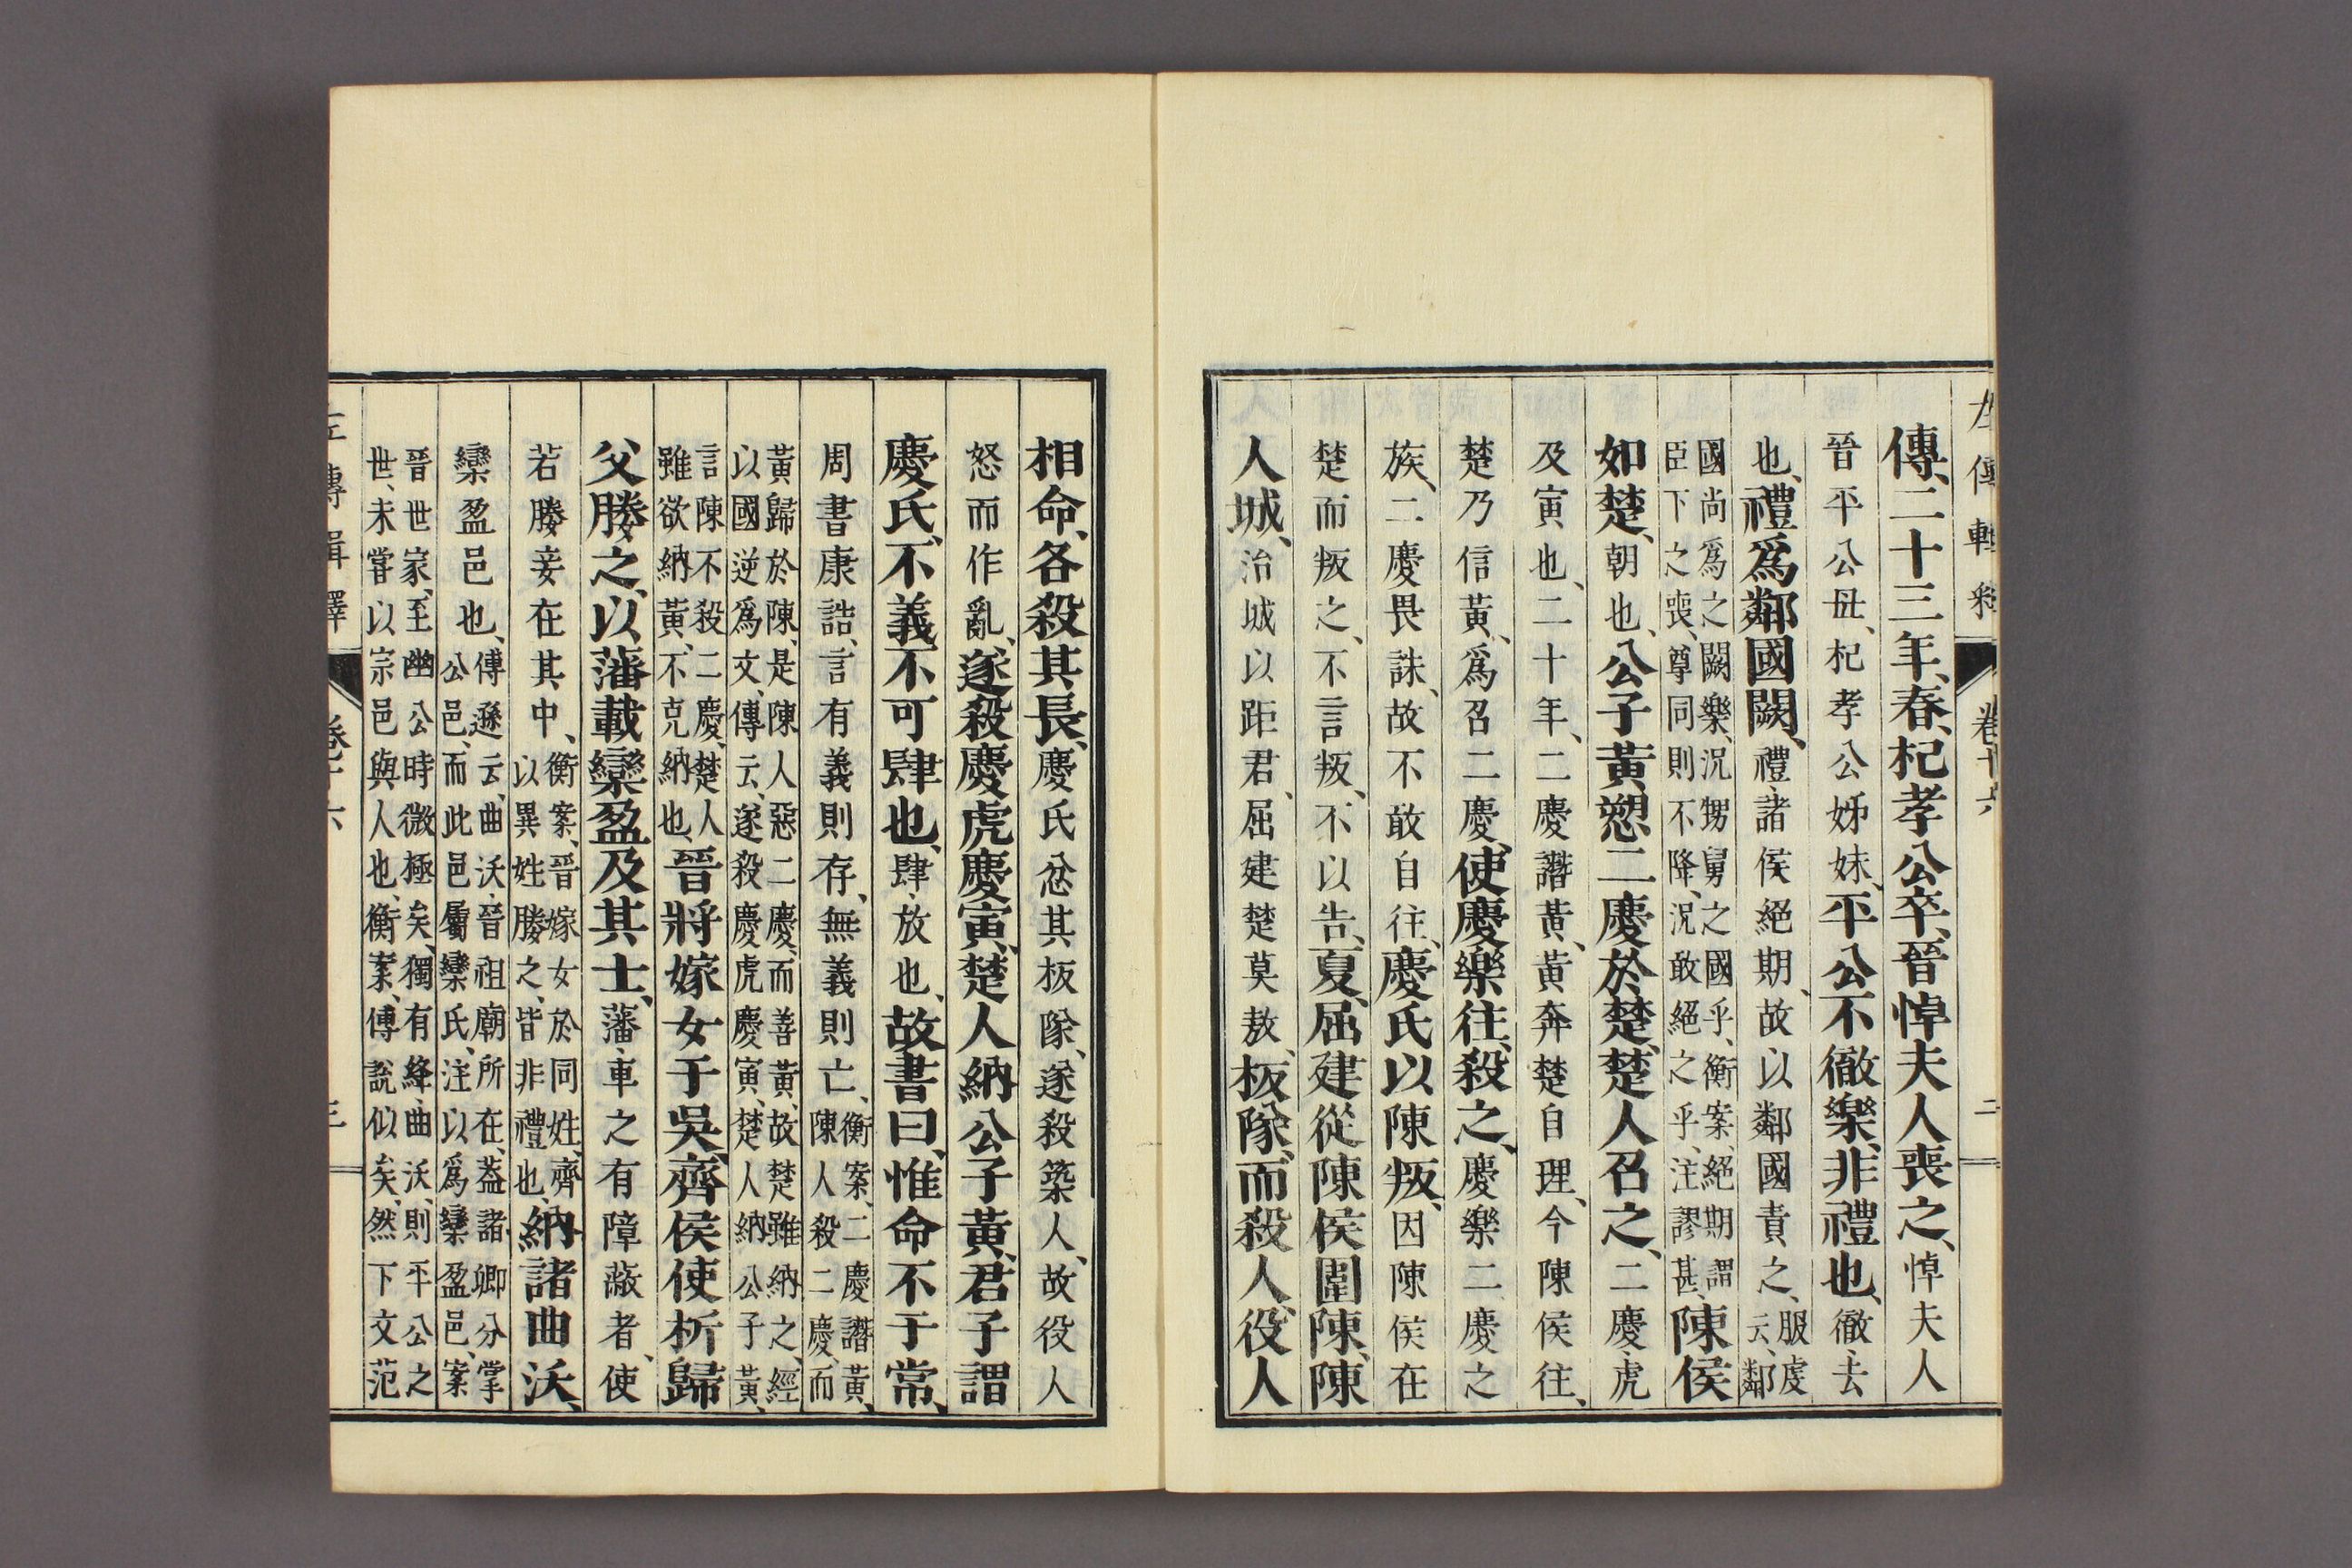 左傳輯釋 卷十六 二
傳、二十三年、春、杞孝公卒、晉悼夫人喪之、悼夫人
晉平公母、杞孝公姊妹、平公不徹樂、非禮也、徹、去
也、禮爲鄰國闕、禮、諸侯絕期、故以鄰國責之、服虔云、鄰
國尚爲之闕樂、況甥舅之國乎、衡案、絕期謂
臣下之喪、尊同則不降、況敢絕之乎、注謬甚、陳侯
如楚、朝也、公子黃愬二慶於楚、楚人召之、二慶、虎
及寅也、二十年、二慶譖黃、黃奔楚自理、今陳侯往、
楚乃信黃、爲召二慶、使慶樂往、殺之、慶樂二慶之
族、二慶畏誅、故不敢自往、慶氏以陳叛、因陳侯在
楚而叛之、不言叛、不以告、夏、屈建從陳侯圍陳、陳
人城、治城以距君、屈建楚莫敖、板隊、而殺人、役人
相命、各殺其長、慶氏忿其板隊、遂殺築人、故役人
怒而作亂、遂殺慶虎慶寅、楚人納公子黃、君子謂
慶氏、不義、不可肆也、肆、放也、故書曰、惟命不于常、
周書康誥、言有義則存、無義則亡、衡案、二慶譖黃、陳人殺二慶、而
黃歸於陳、是陳人惡二慶、而善黃、故楚雖納之、經
以國逆爲文、傳云、遂殺慶虎慶寅、楚人納公子黃、
言陳不殺二慶、楚人
雖欲納黃、不克納也、晉將嫁女于吳、齊侯使析歸
父媵之、以藩載欒盈及其士、藩、車之有障蔽者、使
若媵妾在其中、衡案、晉嫁女於同姓、齊以異姓媵之、皆非禮也、納諸曲沃、
欒盈邑也、傅遜云、曲沃、晉祖廟所在、蓋諸卿分掌公邑、而此邑屬欒氏、注以爲欒盈邑、案
晉世家、至幽公時微極矣、獨有絳、曲沃、則平公之
世、未嘗以宗邑與人也、衡案、傅說似矣、然下文范
左傳輯釋 卷十六 三